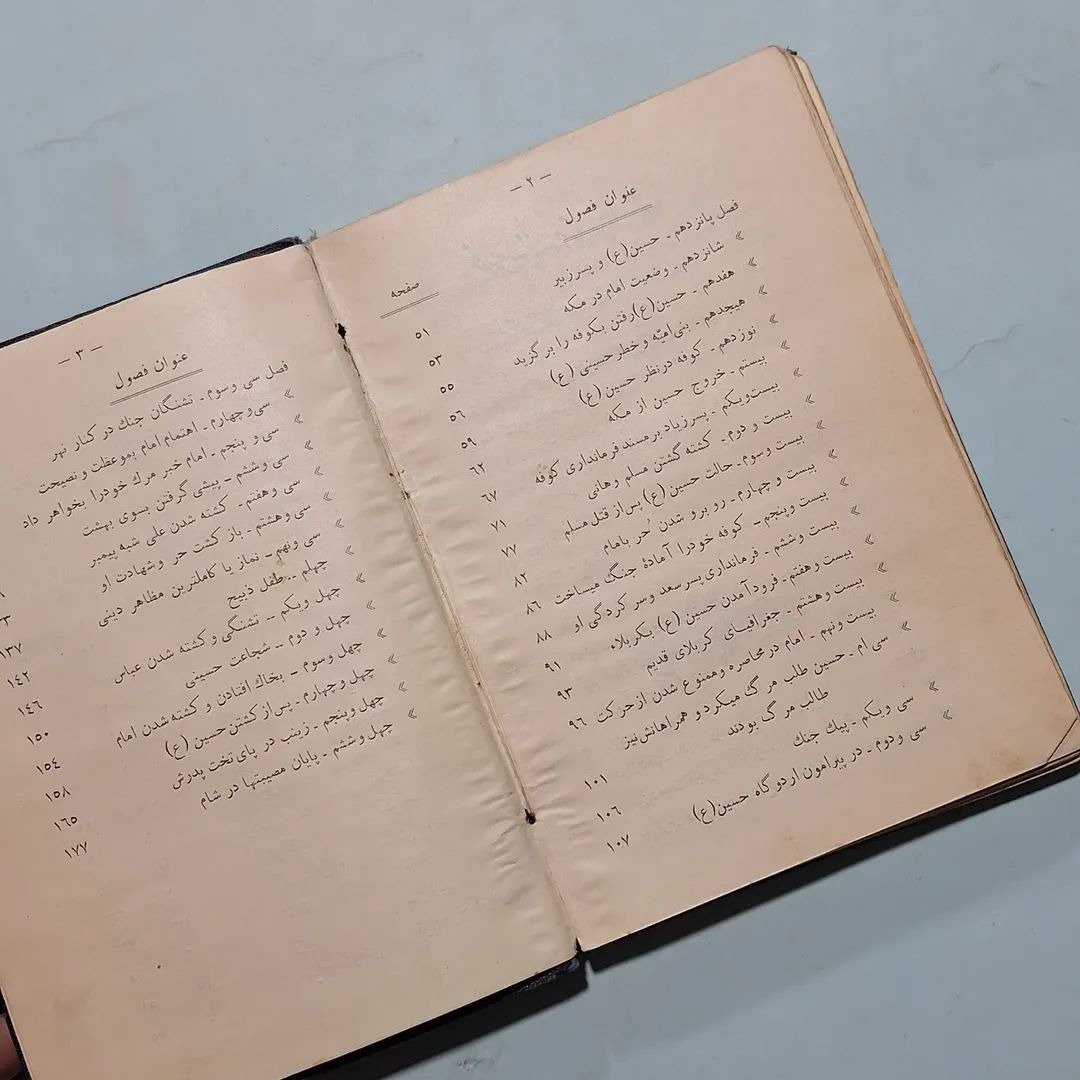 — ٢ —
عنوان فصول
صفحه
فصل پانزدهم ـ حسین(ع) و پسرزبیر ٥١
» شانزدهم ـ وضعیت امام در مکه ٥٣
» هفدهم ـ حسین(ع)رفتن بکوفه را بر گزید ٥٥
» هیجدهم ـ بنی امیّه و خطر حسینی (ع) ٥٦
» نوزدهم ـ کوفه در نظر حسین(ع) ٥٩
» بیستم ـ خروج حسین از مکه ٦٢
» بیست‌ویکم ـ پسرزیاد بر مسند فرمانداری کوفه ٦٧
» بیست و دوم ـ کشته گشتن مسلم وهانی ٧١
» بیست وسوم ـ حالت حسین(ع) پس از قتل مسلم ٧٧
» بیست و چهارم ـ رو برو شدن حُر بامام ٨٢
» بیست وپنجم ـ کوفه خودرا آمادهٔ جنگ میساخت ٨٦
» بیست وششم ـ فرمانداری پسر سعد وسر کردگی او ٨٨
» بیست وهفتم ـ فرودآمدن حسین (ع) بکربلاء ٩١
» بیست وهشتم ـ جغرافیای کربلای قدیم ٩٣
» بیست ونهم ـ امام در محاصره وممنوع شدن ازحرکت ٩٦
» سی ام ـ حسین طلب مرگ میکرد و همراهانش نیز
طالب مرگ بودند ١٠١
» سی ویکم ـ پیك جنك ١٠٦
» سی ودوم ـ در پیرامون اردو گاه حسین(ع) ١٠٧
— ٣ —
عنوان فصول
فصل سی وسوم ـ تشنگان جنك در کنار نهر
» سی‌وچهارم ـ اهتمام امام بموعظت ونصیحت
» سی و پنجم ـ امام خبر مرك خودرا بخواهر داد
» سی وششم ـ پیشی گرفتن بسوی بهشت
» سی وهفتم ـ کشته شدن علی شبه پیمبر
» سی وهشتم ـ باز گشت حر وشهادت او
» سی ونهم ـ نماز یا کاملترین مظاهر دینی ١٣٧
» چهلم ــ طفل ذبیح ١٤٢
» چهل ویکم ــ تشنگی و کشته شدن عباس ١٤٦
» چهل و دوم ــ شجاعت حسینی ١٥٠
» چهل وسوم ـ بخاك افتادن و کشته شدن امام ١٥٤
» چهل وچهارم ـ پس از کشتن حسین (ع) ١٥٨
» چهل وپنجم ـ زینب در پای تخت پدرش ١٦٥
» چهل وششم ـ پایان مصیبتها در شام ١٧٧